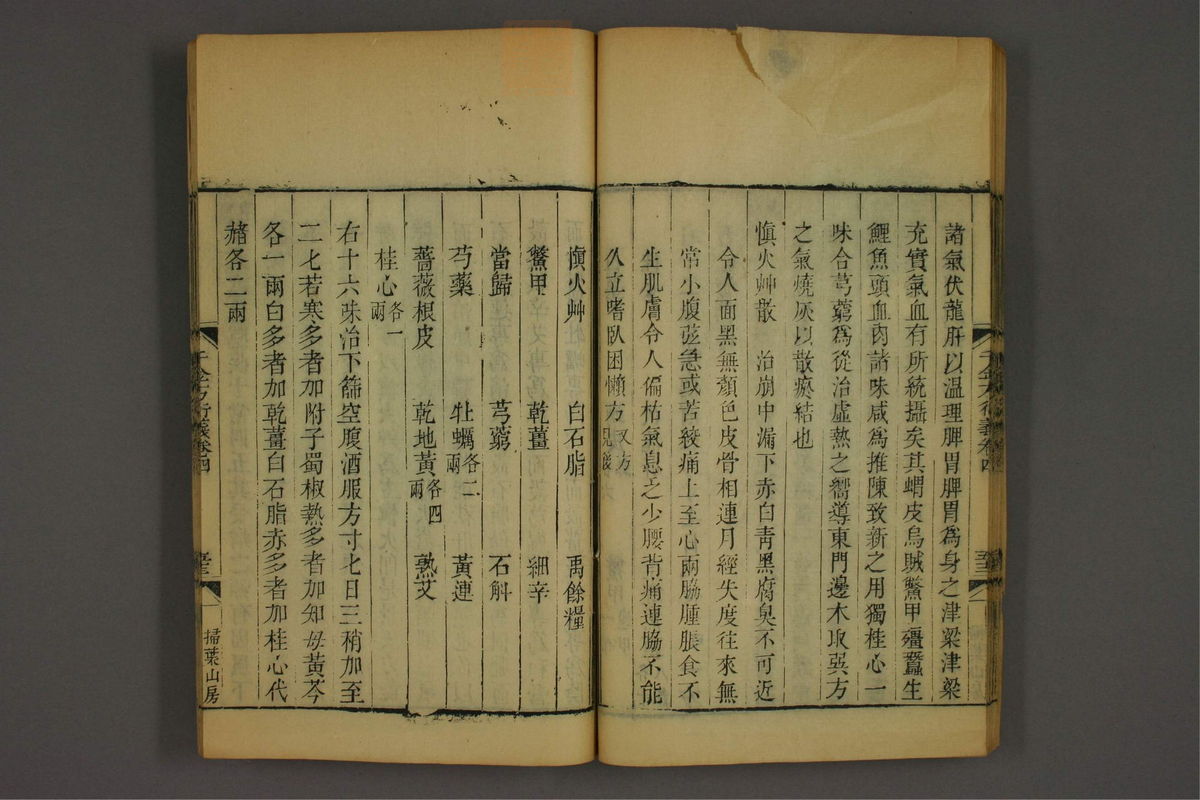 諸氣伏龍肝以溫理脾胃脾胃爲身之津梁津梁
充實氣血有所統攝矣其蝟皮烏賊鱉甲殭蠶生
鯉魚頭血肉諸味咸爲推陳致新之用獨桂心一
味合芎藭爲從治虛熱之嚮導東門邊木取巽方
之氣燒灰以散瘀結也
愼火艸散 治崩中漏下赤白靑黑腐臭不可近
令人面黑無顏色皮骨相連月經失度往來無
常小腹弦急或苦絞痛上至心兩脇腫脹食不
生肌膚令人偏枯氣息乏少腰背痛連脇不能
久立嗜臥困懶方又方見後
愼火艸 白石脂 禹餘糧
鱉甲 乾薑 細辛
當歸 芎藭 石斛
芍藥 牡蠣各二兩 黃連
薔薇根皮 乾地黃各四兩 熟艾
桂心各一兩
右十六味治下篩空腹酒服方寸七日三稍加至
二七若寒多者加附子蜀椒熱多者加知母黃芩
各一兩白多者加乾薑白石脂赤多者加桂心代
赭各二兩
千金方衍義卷四
掃葉山房